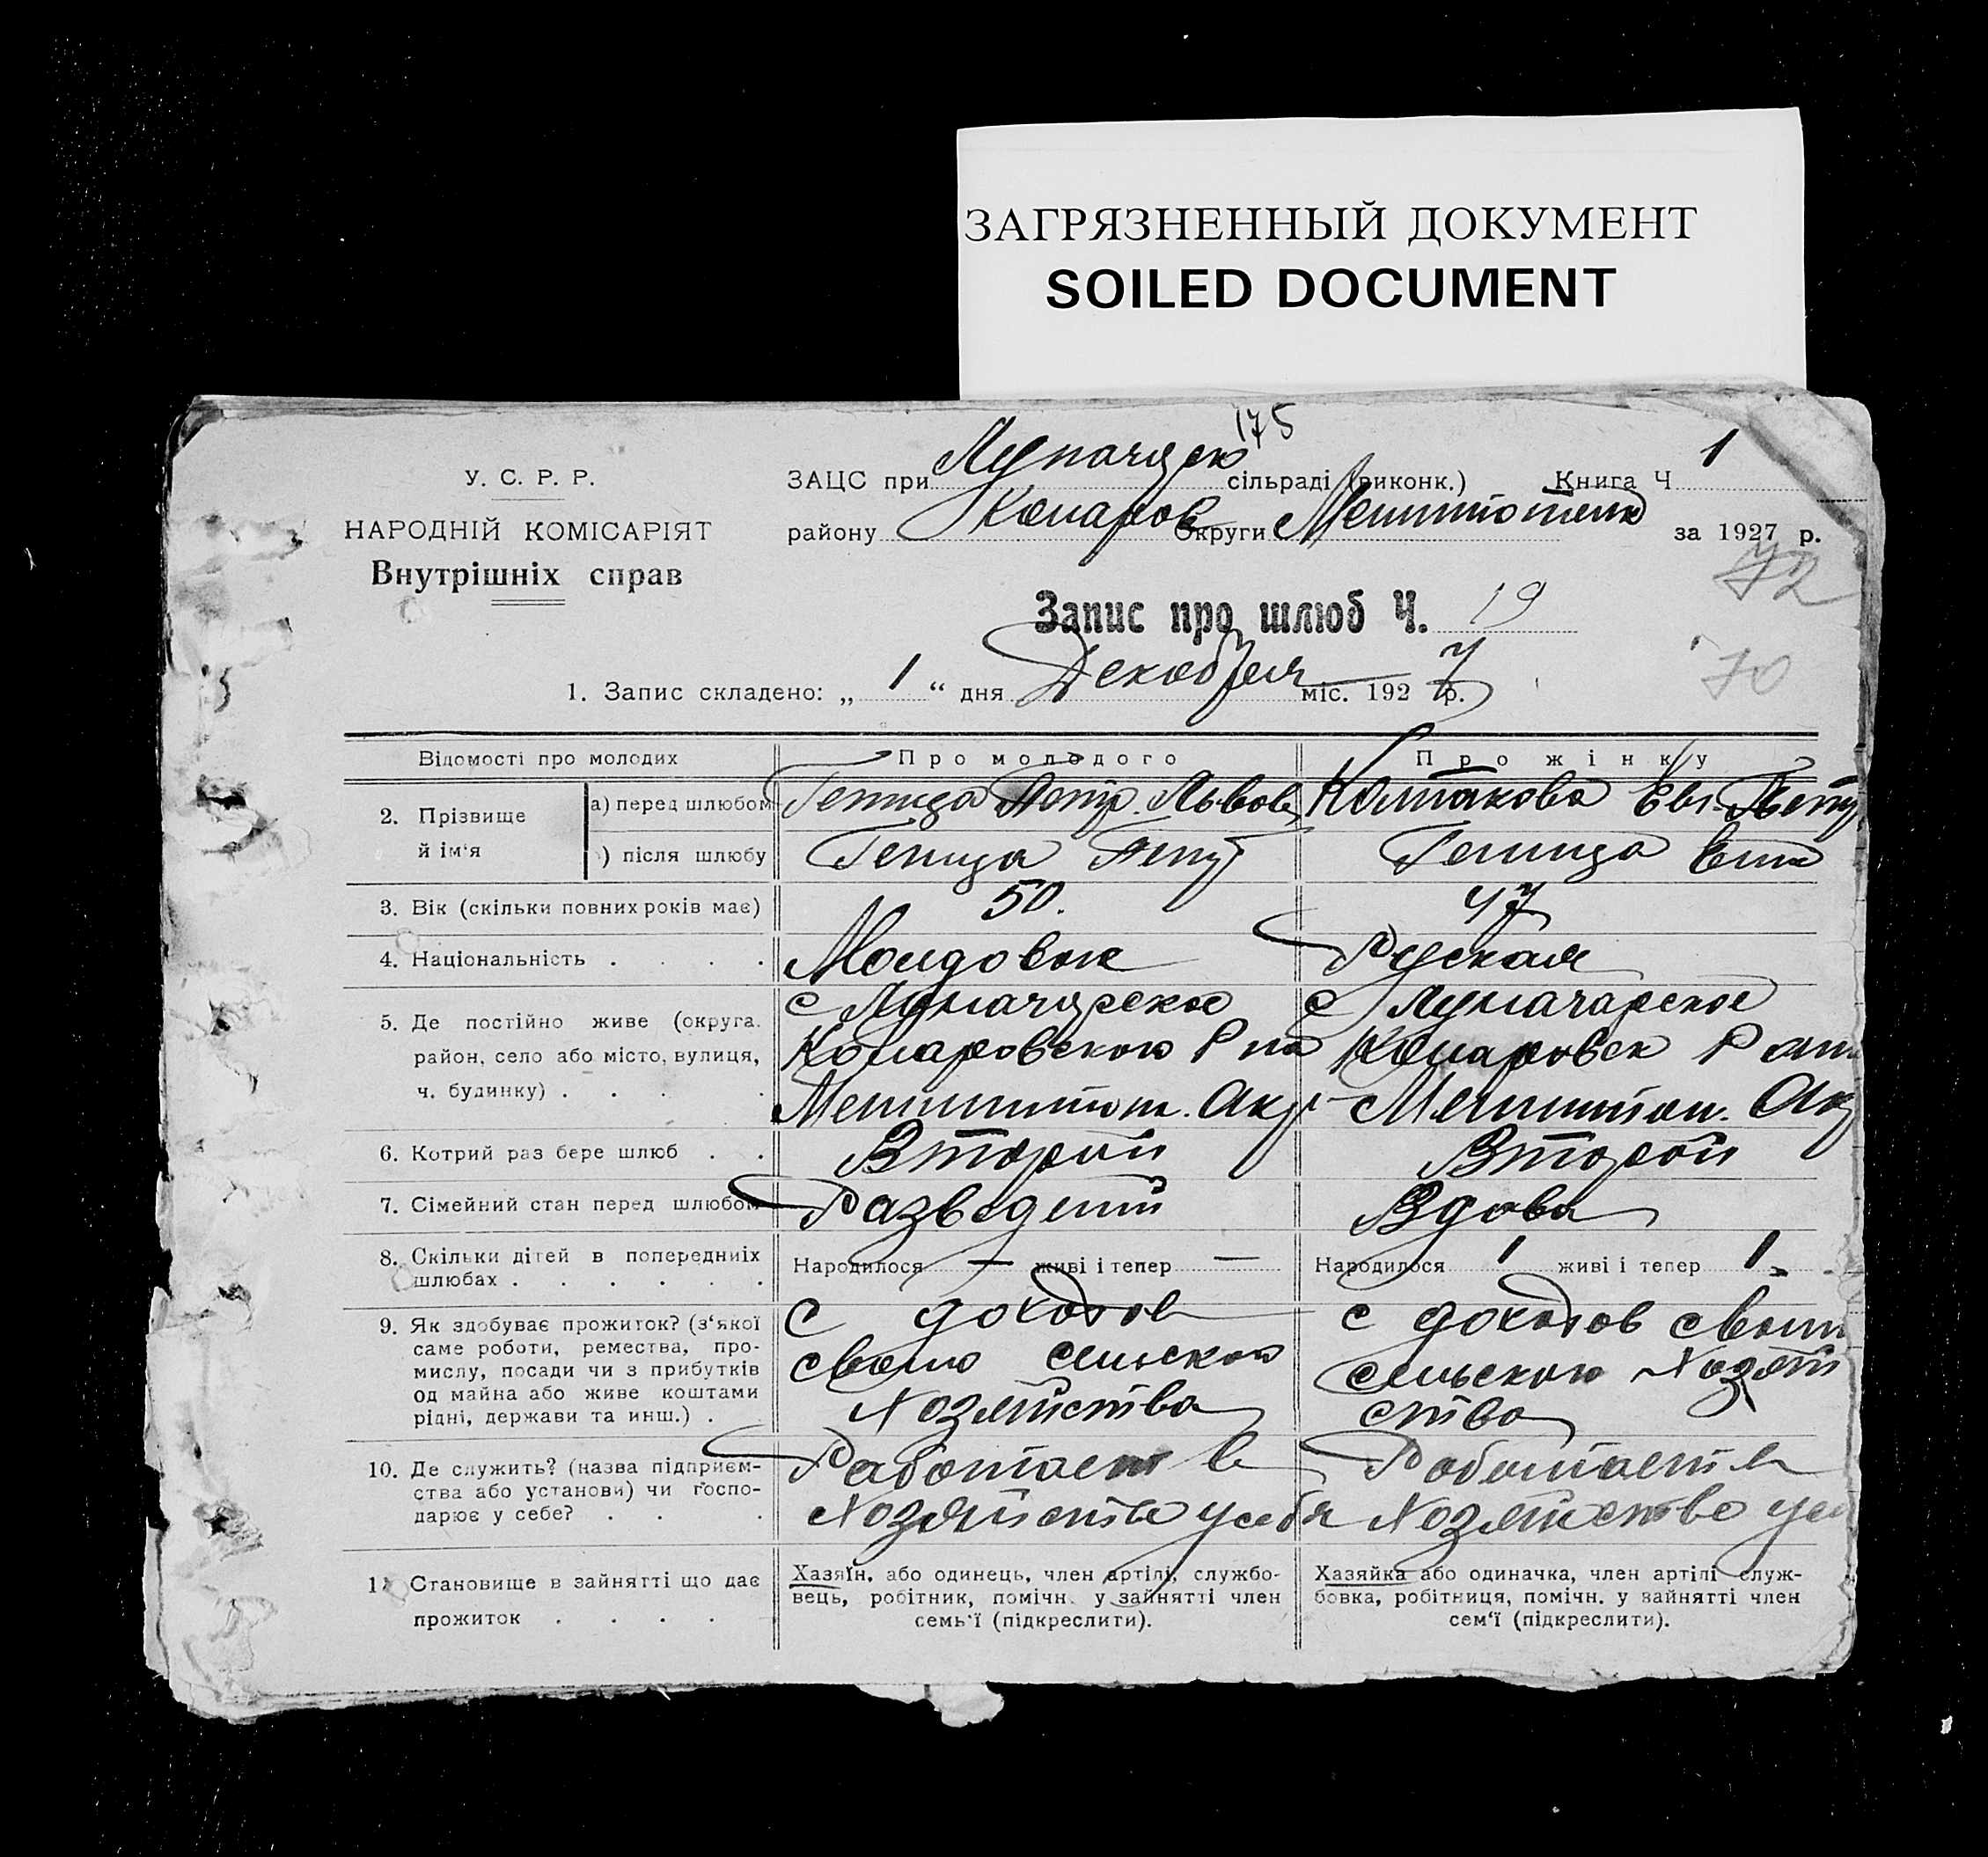 ЗАГРЯЗНЕННЫЙ ДОКУМЕНТ
SOILED DOCUMENT
175
У. С. Р. Р.
ЗАЦС при сільраді (виконк.) Книга Ч 1
НАРОДНІЙ КОМІСАРІЯТ
району Комаров Округи за 1927 р.
Внутрішніх справ
72
Запис про шлюб Ч. 19
70
1. Запис складено: „ 1 “ дня Декабря міс. 1927 р.
Відомості про молодих Про молодого Про жінку
2. Прізвище й ім‘я а) перед шлюбом Петр. Львов
) після шлюбу Петр
3. Вік (скільки повних років має) 50. 47
4. Національність . . . . Руская
5. Де постійно живе (округа, район, село або місто, вулиця, ч. будинку) . . . .
с Луначарское с Луначарское
Комаровского Р на Комаровск Р
6. Котрий раз бере шлюб . . Второй Второй
7. Сімейний стан перед шлюбом Разведений Вдова
8. Скільки дітей в попередниіх шлюбах . . . . . .
Народилося — живі і тепер — Народилося 1 живі і тепер 1
9. Як здобуває прожиток? (з‘якої
саме роботи, ремества, про-
мислу, посади чи з прибутків
од майна або живе коштами
рідні, держави та инш.) .
с доходов с доходов
своего сельского сельского Хозяй
Хозяйства ства
10. Де служить? (назва підприєм-
ства або установи) чи госпо-
дарює у себе? . . .
Работает в Работает в
Хозяйстве у себя Хозяйстве у се
11 Становище в зайнятті що дає
прожиток . . . .
Хазяїн, або одинець, член артілі, службо-
вець, робітник, помічн. у зайнятті член
семь‘ї (підкреслити).
Хазяйка або одиначка, член артілі служ-
бовка, робітниця, помічн. у зайнятті член
сем‘ї (підкреслити).